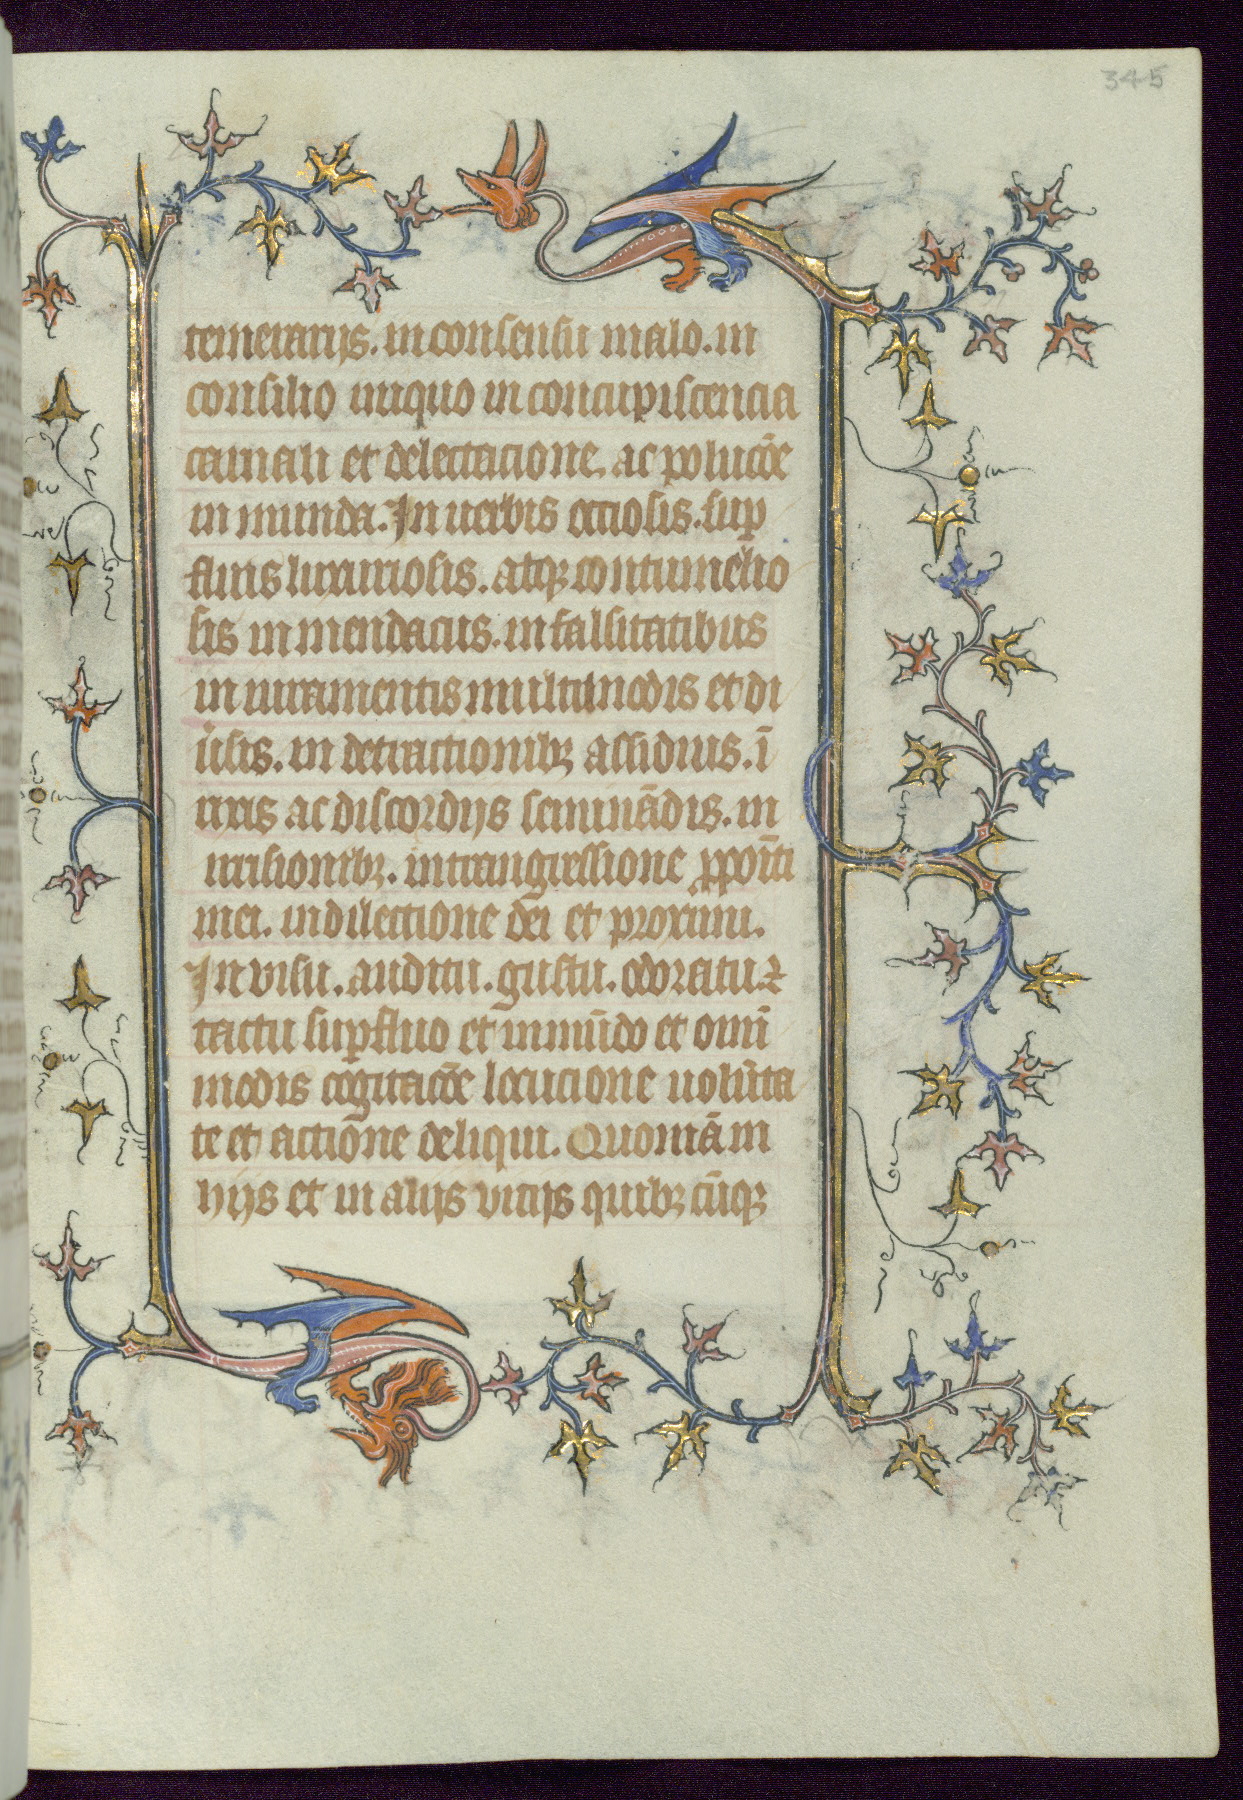 345
temerarijs. in consensu malo. in
consilio iniquo in concupiscencia
carnali et delectacione. ac polucōe
in munda. In uerbis occiosis. sup
fluis luxuriosis. atqꝫ contumelio
sis in mendaciis. in falsitatibus
in iuramentis multimodis et di
ūsis. in detractionibꝫ assiduis. ī
rixis ac discordijs seminādis. in
irrisionibꝫ. in trangressione ꝓpoīti
mei. in dilectione dei et proximi.
In visu. auditu. gustu. odoratu. ⁊
tactu supfluo et inmūdo et omī
modis cogitacōe locucione uolūta
te et actione deliqui. Quoniā in
hijs et in alijs vicijs quibꝫ cūqꝫ